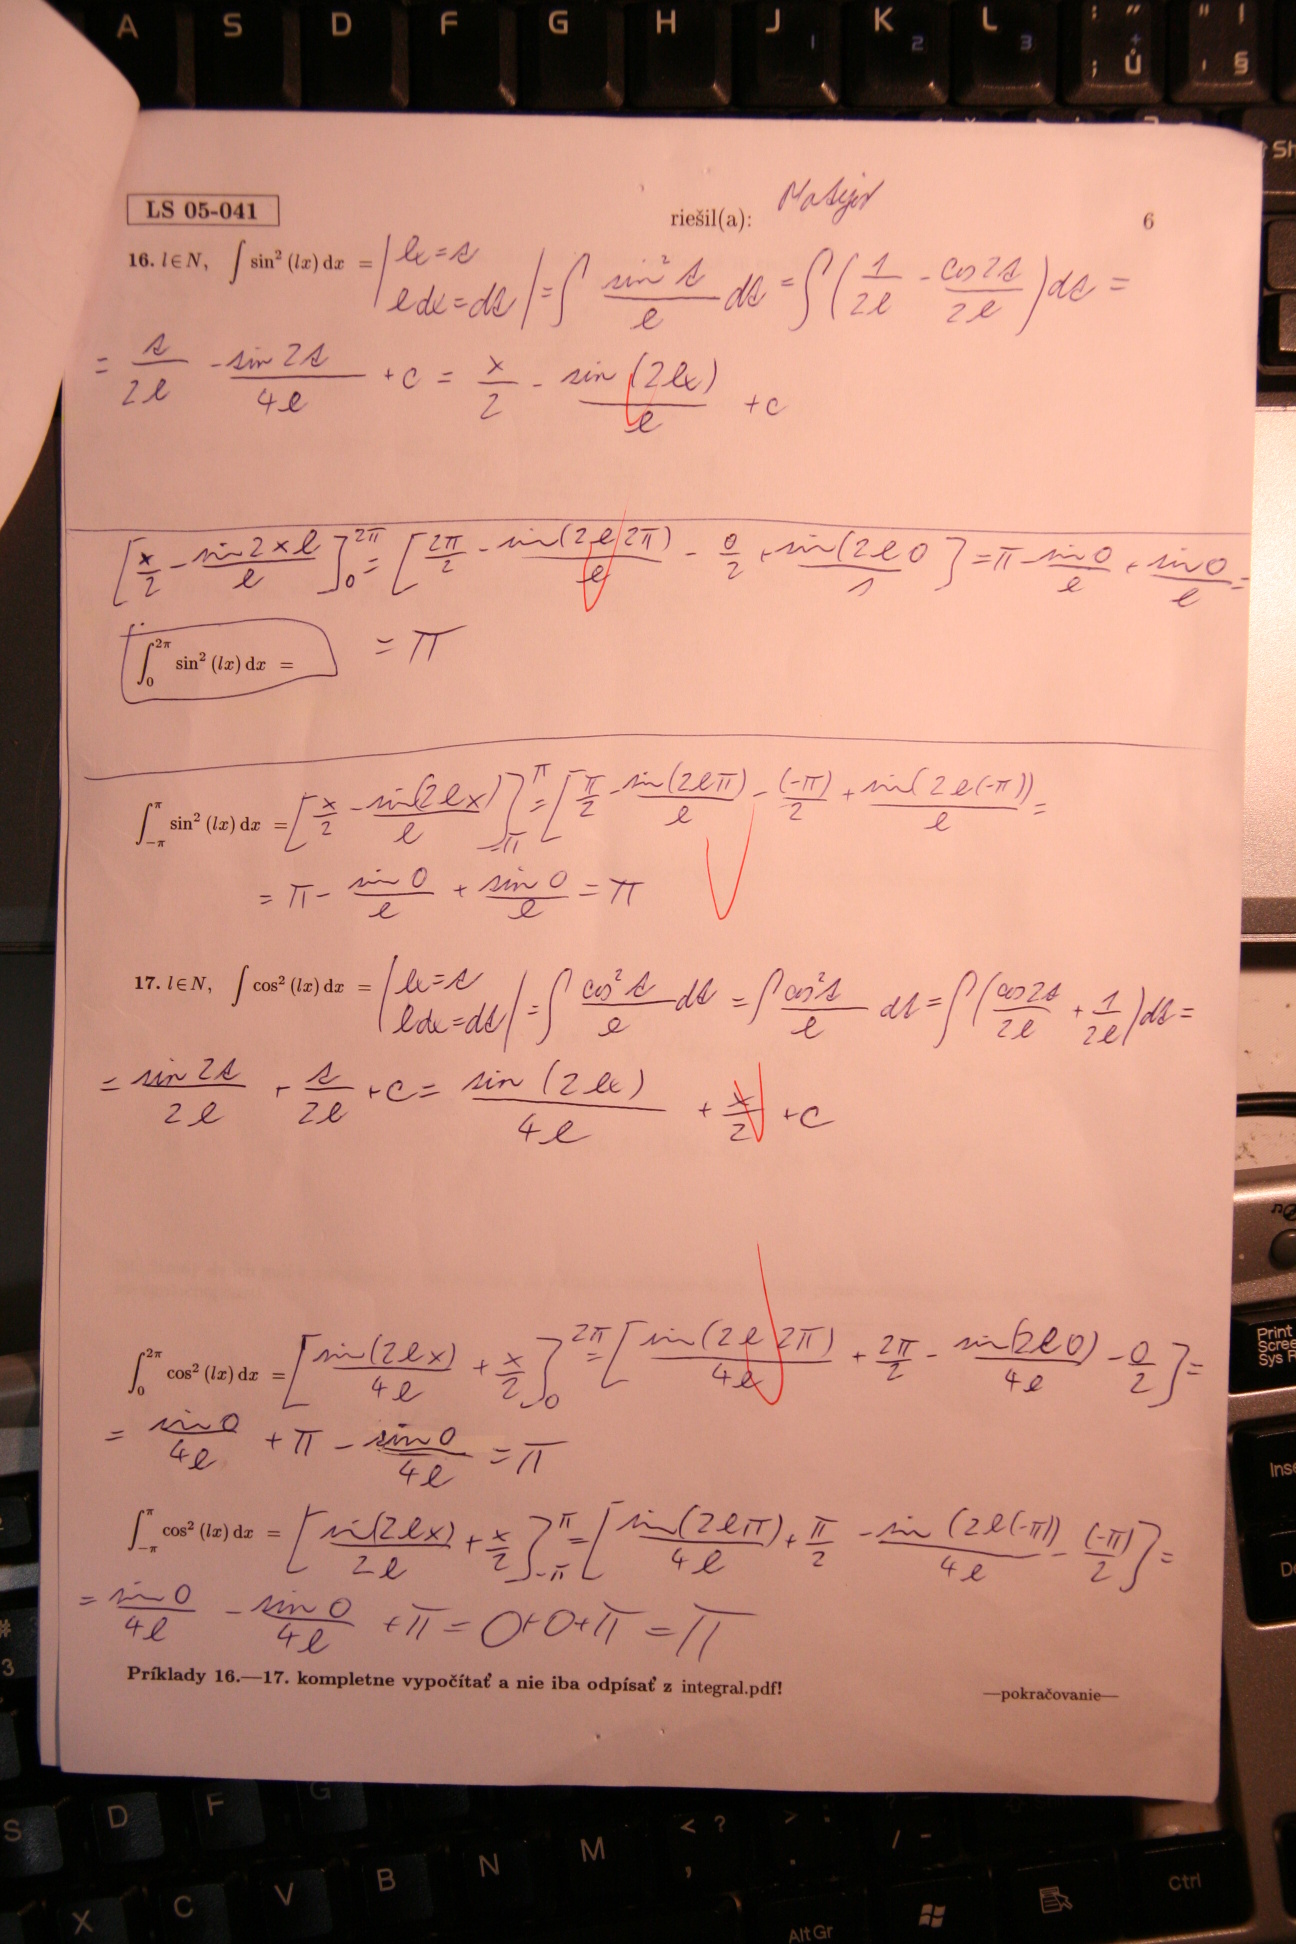 A S D F G H J 1 K 2 L 3 ; " + ; Ů " ! ' §
Sh
LS 05-041 riešil(a): 6
16. l∈N, ∫ sin² (lx) dx = | lx=s ldx=ds | = ∫ sin² s / l ds = ∫ (1/2l - cos2s/2l) ds =
= s/2l - sin 2s/4l + c = x/2 - sin (2lx)/l + c
[x/2 - sin2xl/l]₀^2π = [2π/2 - sin(2l2π)/l - 0/2 + sin(2l0/1] = π - sin0/l + sin0/l =
∫₀^2π sin² (lx) dx = = π
∫_-π^π sin² (lx) dx = [x/2 - sin(2lx)/l]_-π^π = [π/2 - sin(2lπ)/l - (-π)/2 + sin(2l(-π))/l =
= π - sin0/l + sin0/l = π
17. l∈N, ∫ cos² (lx) dx = | lx=s ldx=ds | = ∫ cos² s/l ds = ∫ cos² s/l ds = ∫ (cos2s/2l + 1/2l) ds =
= sin 2s/2l + s/2l + c = sin (2lx)/4l + x/2 + c
∫₀^2π cos² (lx) dx = [sin(2lx)/4l + x/2]₀^2π = [sin(2l2π)/4l + 2π/2 - sin(2l0)/4l - 0/2] =
= sin0/4l + π - sin0/4l = π
∫_-π^π cos² (lx) dx = [sin(2lx)/2l + x/2]_-π^π = [sin(2lπ)/4l + π/2 - sin (2l(-π))/4l - (-π)/2] =
= sin0/4l - sin0/4l + π = 0+0+π = π
Príklady 16.—17. kompletne vypočítať a nie iba odpísať z integral.pdf!
—pokračovanie—
Print
Scree
Sys R
Inse
De
# 3
S D F G
X C V B N M < ? , > : . / -
Alt Gr Ctrl